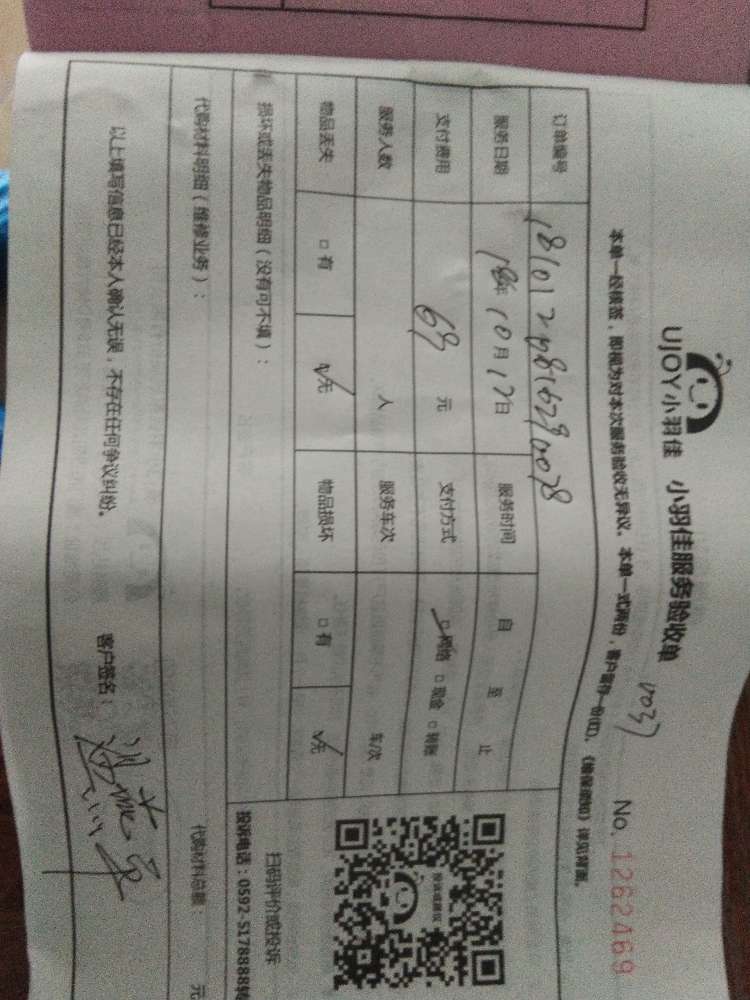 UJOY小羽佳 小羽佳服务验收单 No. 1262469
1037
本单一经核签，即视为对本次服务验收无异议。本单一式两份，客户留存一份(红)，《维保须知》详见背面。
订单编号
服务日期 18年 10月 12日 服务时间 自 至 止
支付费用 69 元 支付方式 □网络 □现金 □转账
服务人数 人 服务车次 车次
物品丢失 □有 ☑无 物品损坏 □有 ☑无
损坏或丢失物品明细（没有可不填）：
投诉建议
扫码评价或投诉
投诉电话：0592-5178888转
代购材料明细（维修业务）： 代购材料总额： 元
以上填写信息已经本人确认无误，不存在任何争议纠纷。 客户签名：